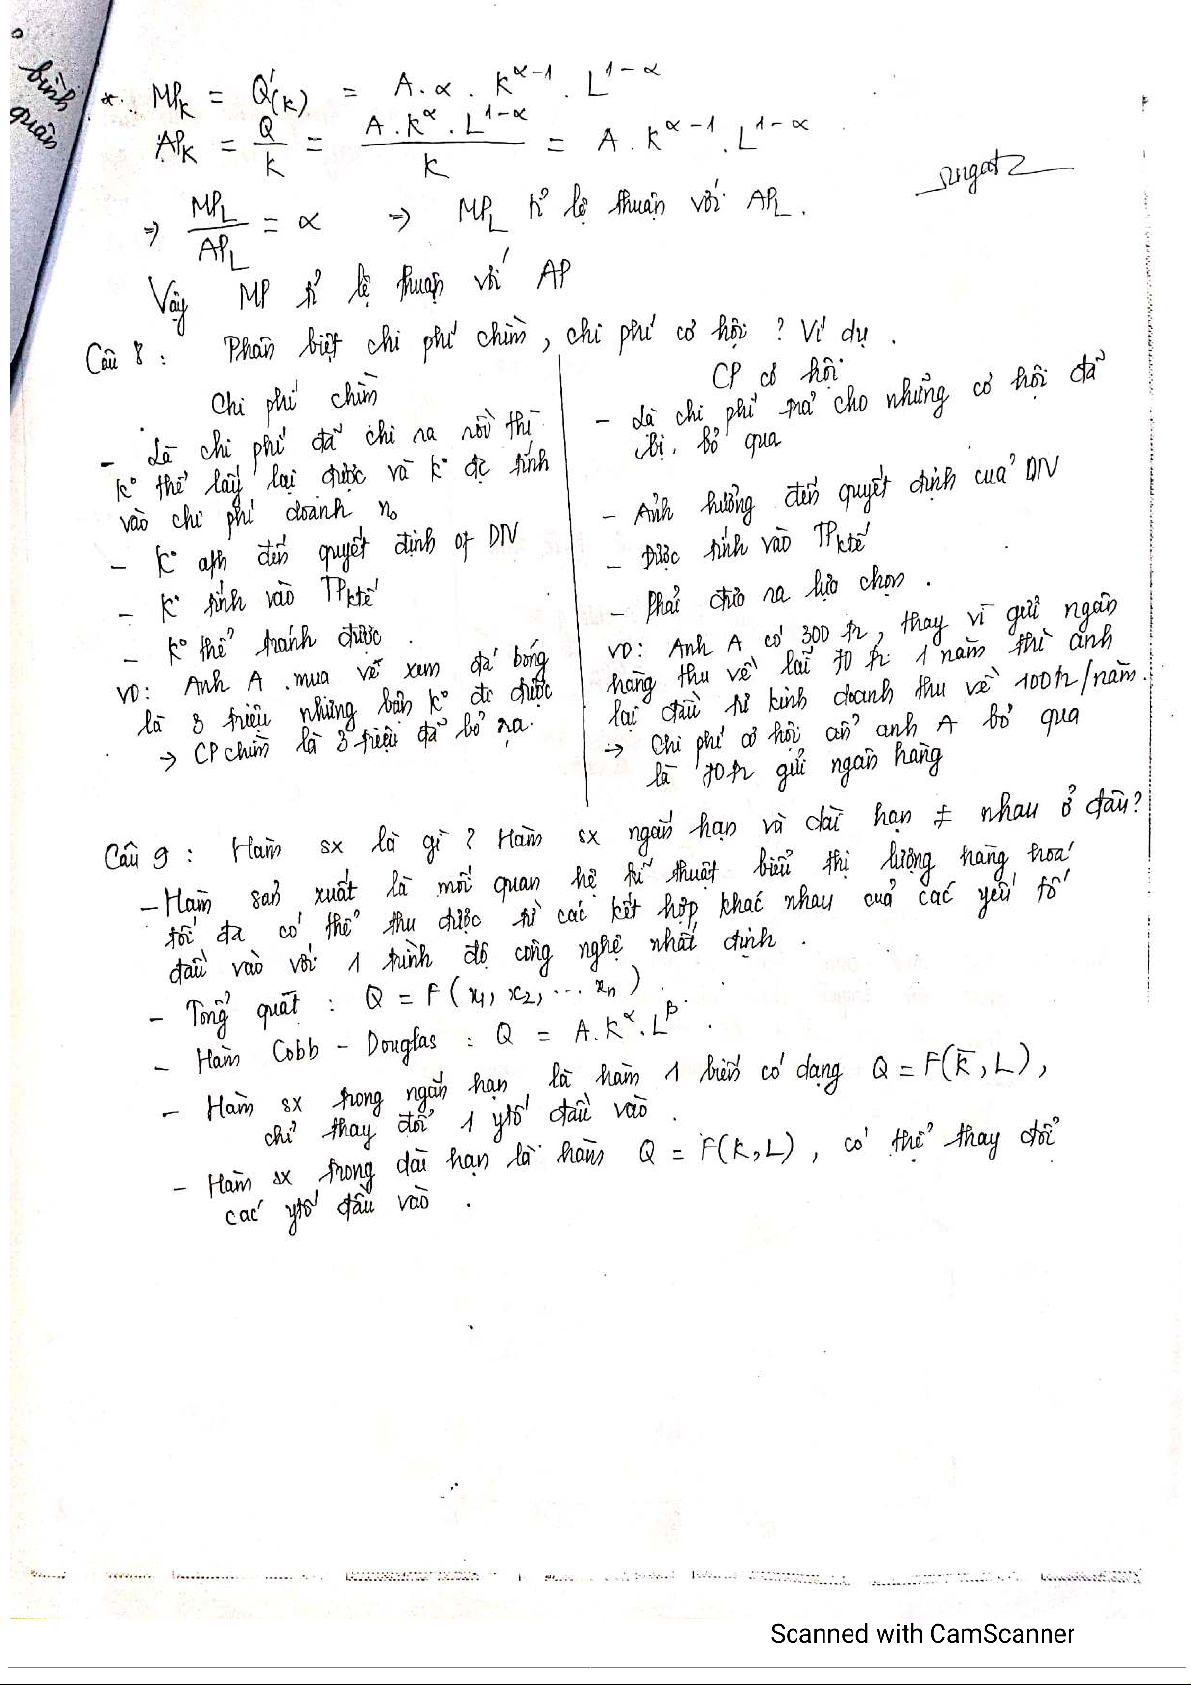 bình
quân
*. MP_K = Q'(K) = A.α. K^{α-1}. L^{1-α}
AP_K = Q/K = A.K^α.L^{1-α}/K = A.K^{α-1}.L^{1-α}
=> MP_L/AP_L = α => MP_L tỉ lệ thuận với AP_L.
Vậy MP tỉ lệ thuận với AP
Câu 8: Phân biệt chi phí chìm, chi phí cơ hội? Ví dụ.
Chi phí chìm
- Là chi phí đã chi ra rồi thì
K° thể lấy lại được và K° đc tính
vào chi phí doanh n°
- K° aħ đến quyết định of DN
- K° tính vào TPktế
- K° thể tránh được.
VD: Anh A mua vé xem đá bóng
là 3 triệu nhưng bán K° đc được
→ CP chìm là 3 triệu đã bỏ ra.
CP cơ hội
- Là chi phí trả cho những cơ hội đã
bị bỏ qua
- Ảnh hưởng đến quyết định của DN
- Được tính vào TPktế
- Phải đưa ra lựa chọn.
VD: Anh A có 300tr, thay vì gửi ngân
hàng thu về lãi 70tr 1 năm thì anh
lại đầu tư kinh doanh thu về 100tr/năm.
→ Chi phí cơ hội ẩn anh A bỏ qua
là 70tr gửi ngân hàng
Câu 9: Hàm sx là gì? Hàm sx ngắn hạn và dài hạn ≠ nhau ở đâu?
- Hàm sản xuất là mối quan hệ kĩ thuật biểu thị lượng hàng hoá
tối đa có thể thu được từ các kết hợp khác nhau của các yếu tố
đầu vào với 1 trình độ công nghệ nhất định.
- Tổng quát: Q = F(x1, x2, ... xn)
- Hàm Cobb - Douglas: Q = A.K^α.L^β.
- Hàm sx trong ngắn hạn là hàm 1 biến có dạng Q = F(K̄, L),
chỉ thay đổi 1 ytố đầu vào.
- Hàm sx trong dài hạn là hàm Q = F(K, L), có thể thay đổi
các ytố đầu vào.
Scanned with CamScanner